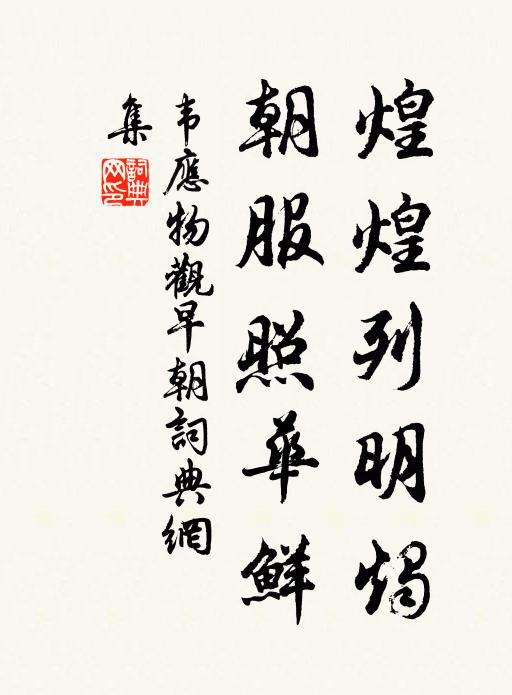 煌煌列明燭
朝服照華鮮
韋應物觀早朝詞典網
集
詞典網印